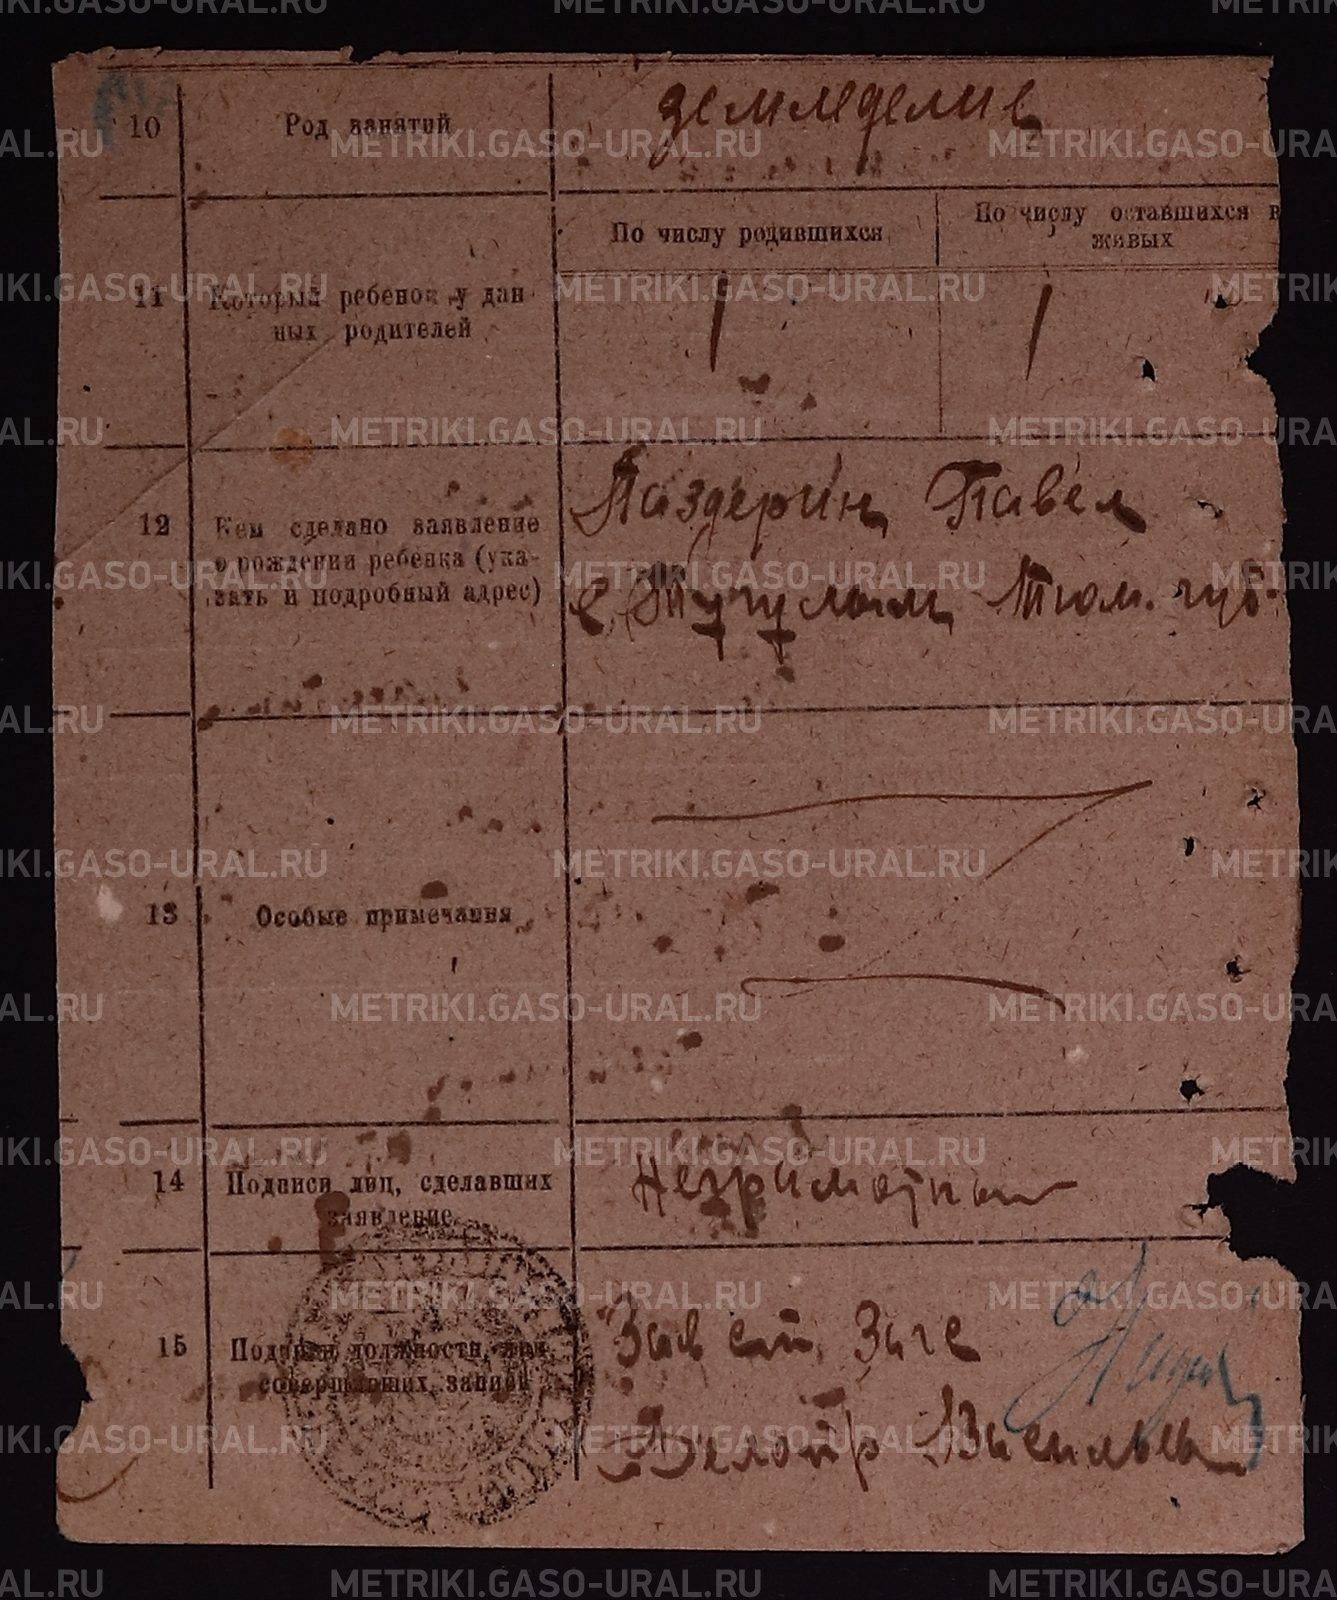 10 Род занятий земледелие
По числу родившихся
По числу оставшихся в
живых
11 Который ребенок у дан
ных родителей
1 1
12 Кем сделано заявление
о рождении ребенка (ука-
зать и подробный адрес)
Паздерин Павел
с. Тугулым Тюм. губ.
13 Особые примечания
14 Подписи лиц, сделавших
заявление
Неграмотный
15 Подписи должностн. лиц,
совершивших запись
Зав
Делопр Васильев
METRIKI.GASO-URAL.RU